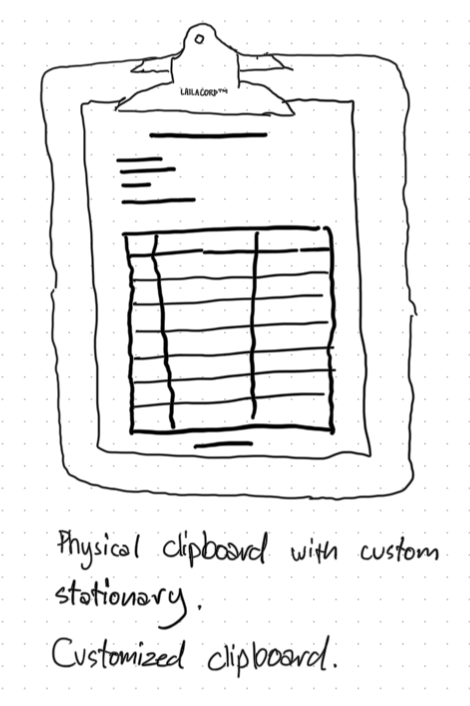 LAILACORD™
Physical clipboard with custom
stationary.
Customized clipboard.